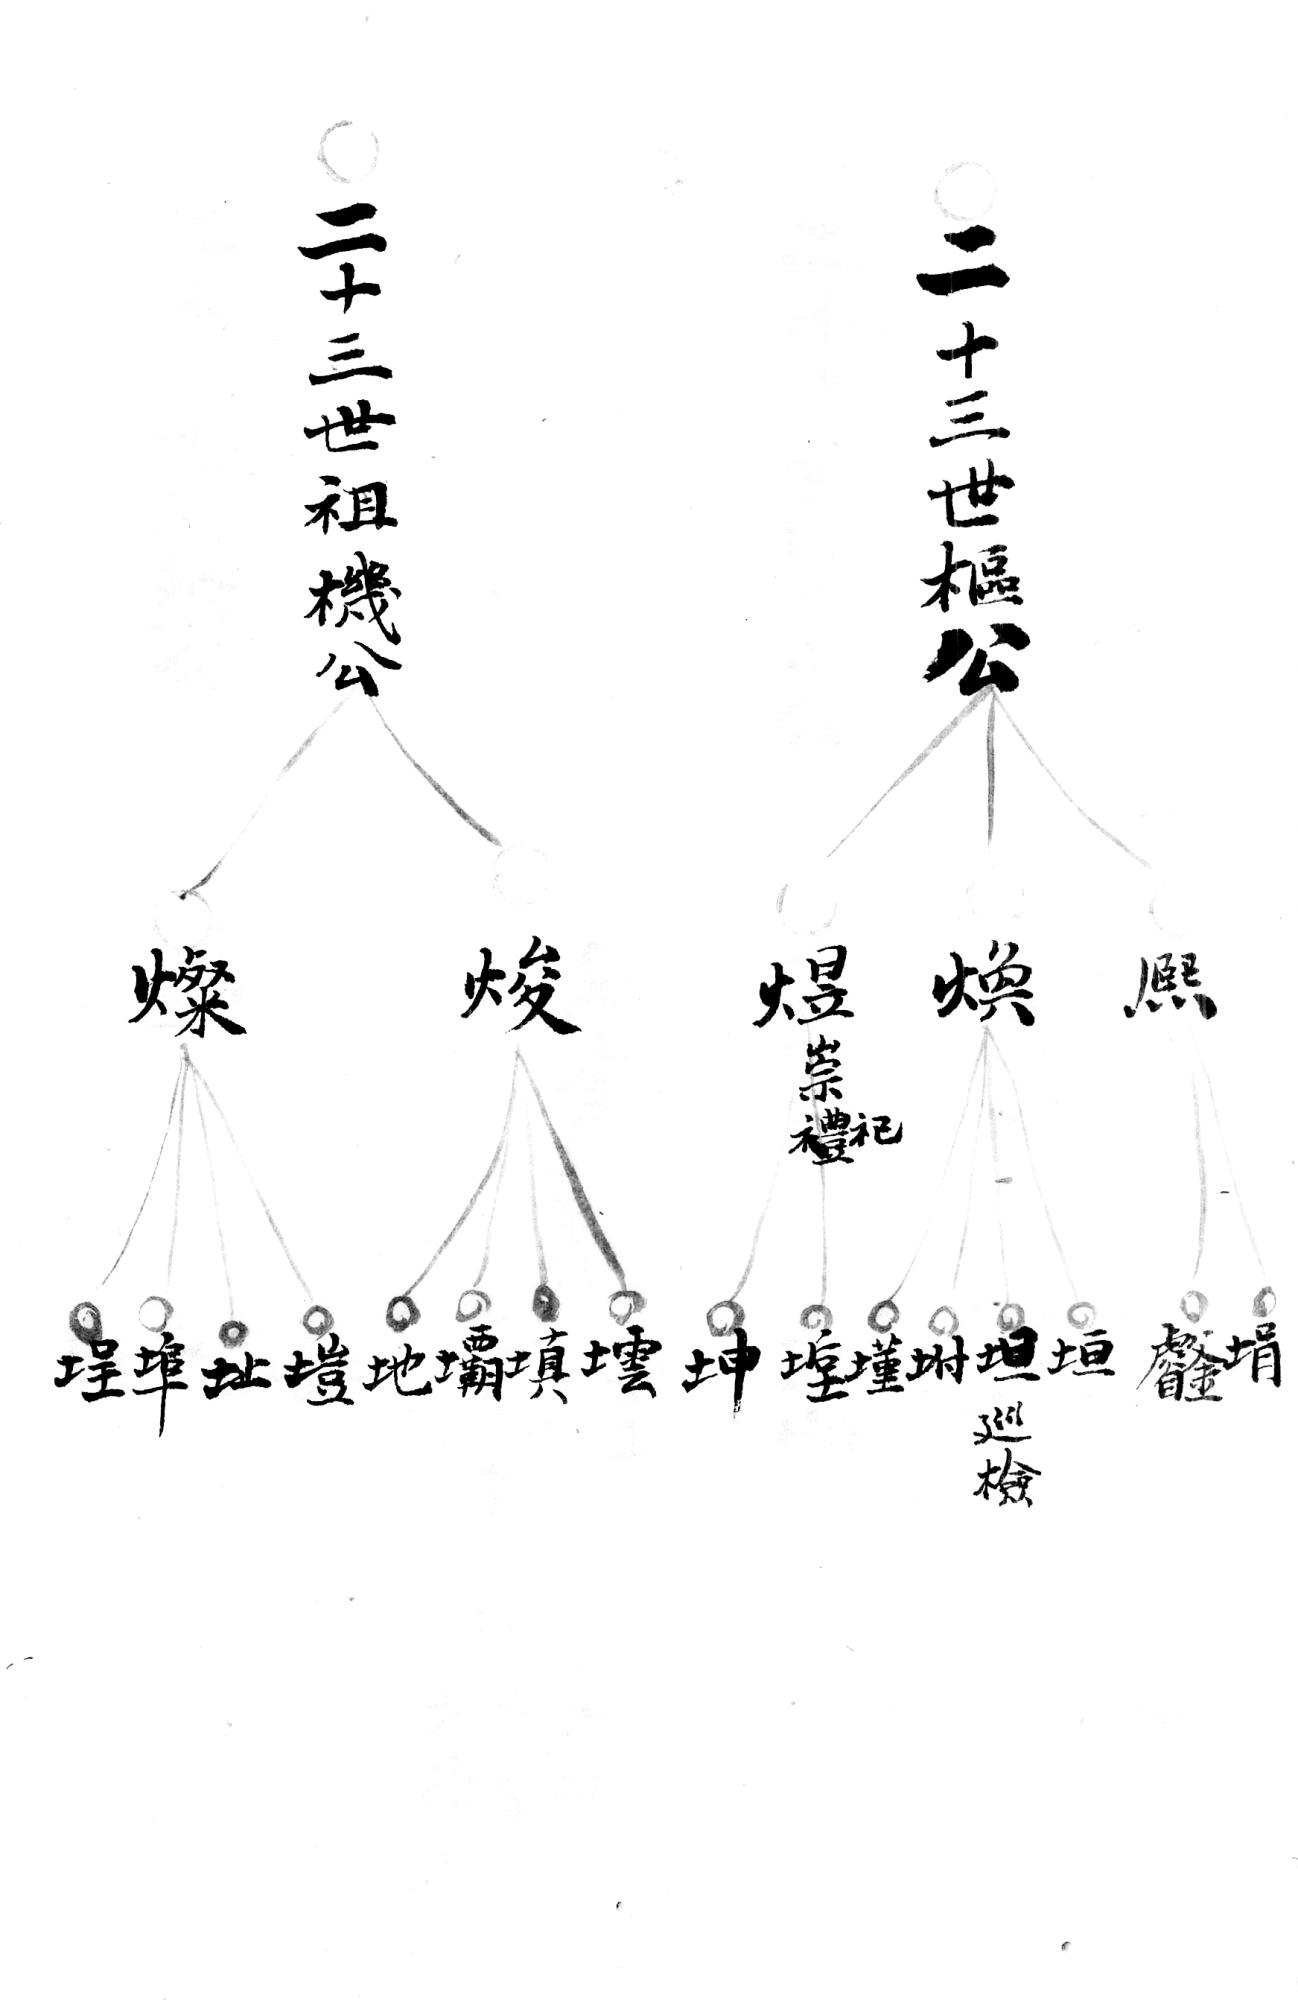 二十三世樞公
熙
煥
煜
崇禮祀
塤
垣
坦
巡檢
坿
墐
坤
二十三世祖機公
焌
燦
填
壩
地
塏
址
埠
埕